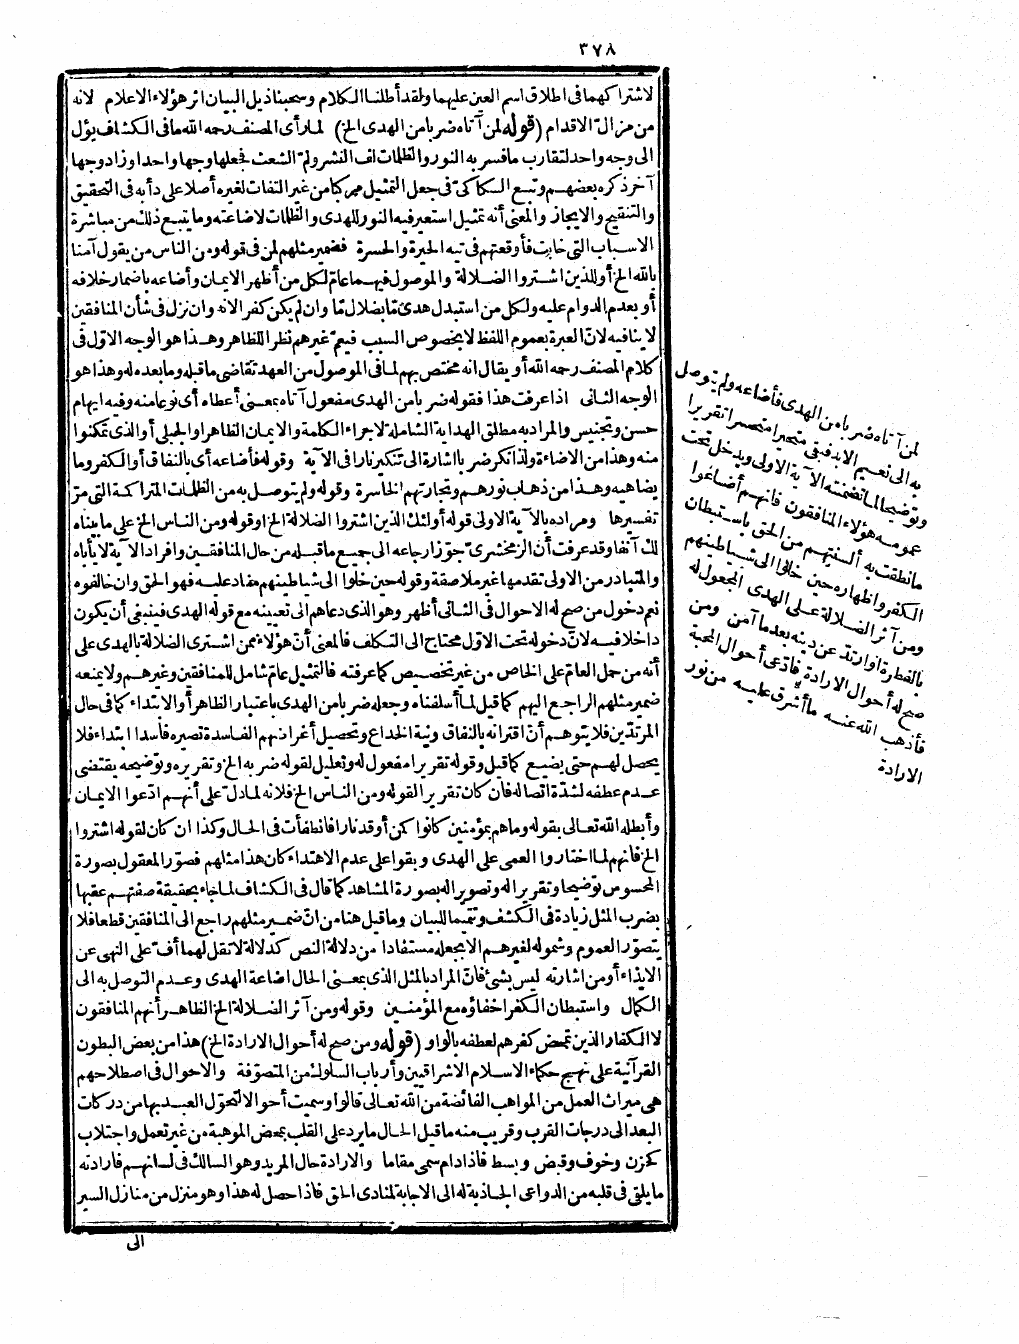 ٣٧٨
لاشتراكهما فى اطلاق اسم العين عليهما ولقد أطلنا الكلام وسحبنا ذيل البيان اثر هؤلاء الاعلام لانه
من مزال الاقدام (قوله لمن آتاه ضربا من الهدى الخ) لما رأى المصنف رحمه الله ما فى الكشاف يؤل
الى وجه واحد لتقارب ما فسر به النور والظلمات لف النشر ولم الشعث فجعلها وجها واحدا وزاد وجها
آخر ذكره بعضهم وتبع السكاكىّ فى جعل التمثيل مركبا من غير التفات لغيره أصلا على دأبه فى التحقيق
والتنقيح والايجاز والمعنى أنه تمثيل استعير فيه النور للهدى والظلمات لاضاعته وما يتبع ذلك من مباشرة
الاسباب التى خابت فأوقعتهم فى تيه الحيرة والحسرة فضمير مثلهم لمن فى قوله ومن الناس من يقول آمنا
بالله الخ أو للذين اشتروا الضلالة والموصول فيهما عام لكل من أظهر الايمان وأضاعه باضمار خلافه
أو بعدم الدوام عليه ولكل من استبدل هدى مّا بضلال مّا وان لم يكن كفر الانه وان نزل فى شأن المنافقين
لا ينافيه لانّ العبرة بعموم اللفظ لا بخصوص السبب فيعمّ غيرهم نظر اللظاهر وهذا هو الوجه الاوّل فى
كلام المصنف رحمه الله أو يقال انه مختص بهم لما فى الموصول من العهد تقاضى ما قبله وما بعده له وهذا هو
الوجه الثانى اذا عرفت هذا فقوله ضربا من الهدى مفعول آتاه بمعنى أعطاه أى نوعا منه وفيه ايهام
حسن وتجنيس والمراد به مطلق الهداية الشاملة لاجراء الكلمة والايمان الظاهر والجبلى أو الذى تمكنوا
منه وهذا من الاضاءة ولذا نكر ضربا اشارة الى تنكير نارا فى الآية وقوله فأضاعه أى بالنفاق أو الكفر وما
يضاهيه وهذا من ذهاب نورهم وتجارتهم الخاسرة وقوله ولم يتوصل به من الظلمات المتراكمة التى مرّ
تفسيرها ومراده بالآية الاولى قوله أولئك الذين اشتروا الضلالة الخ أو قوله ومن الناس الخ على ما بيناه
لك آنفا وقد عرفت أن الزمخشرىّ جوّز ارجاعه الى جميع ما قبله من حال المنافقين وافراد الآية لا يأباه
والمتبادر من الاولى تقدمها غير ملاصقة وقوله حين خلوا الى شياطينهم مفاد عليه فهو الحق وان خالفوه
نعم دخول من صح له الاحوال فى الثانى أظهر وهو الذى دعاهم الى تعيينه مع قوله الهدى فينبغى أن يكون
داخلا فيه لانّ دخوله تحت الاوّل محتاج الى التكلف فالمعنى أنّ هؤلاء ممن اشترى الضلالة بالهدى على
أنه من حمل العامّ على الخاص من غير تخصيص كما عرفته فالتمثيل عامّ شامل للمنافقين وغيرهم ولا يمنعه
ضمير مثلهم الراجع اليهم كما قيل لما أسلفناه وجعله ضربا من الهدى باعتبار الظاهر أو الابتداء كما فى حال
المرتدّين فلا يتوهم أنّ اقترانه بالنفاق ونية الخداع وتحصيل أغراضهم الفاسدة تصيره فاسدا ابتداء فلا
يحصل لهم حتى يضيع كما قيل وقوله تقريرا مفعول له وتعليل لقوله ضربه الخ وتقريره وتوضيحه يقتضى
عدم عطفه لشدّة اتصاله فان كان تقريرا لقوله ومن الناس الخ فلانه لما دلّ على أنهم ادّعوا الايمان
وأبطله الله تعالى بقوله وما هم بمؤمنين كانوا كمن أوقد نارا فانطفأت فى الحال وكذا ان كان لقوله اشتروا
الخ فانهم لما اختاروا العمى على الهدى وبقوا على عدم الاهتداء كان هذا مثلهم فصوّر المعقول بصورة
المحسوس توضيحا وتقريرا له وتصويرا له بصورة المشاهد كما قال فى الكشاف لما جاء بحقيقة صفتهم عقبها
بضرب المثل زيادة فى الكشف وتتميما للبيان وما قيل هنا من انّ ضمير مثلهم راجع الى المنافقين قطعا فلا
يتصوّر العموم وشموله لغيرهم الا بجعله مستفادا من دلالة النص كدلالة لا تقل لهما أفّ على النهى عن
الايذاء أو من اشارته ليس بشئ فانّ المراد بالمثل الذى بمعنى الحال اضاعة الهدى وعدم التوصل به الى
الكمال واستبطان الكفر اخفاؤه مع المؤمنين وقوله ومن آثر الضلالة الخ الظاهر أنهم المنافقون
لا الكفار الذين تمحض كفرهم لعطفه بالواو (قوله ومن صح له أحوال الارادة الخ) هذا من بعض البطون
القرآنية على نهج حكماء الاسلام الاشراقيين وأرباب السلوك من المتصوّفة والاحوال فى اصطلاحهم
هى ميراث العمل من المواهب الفائضة من الله تعالى قالوا وسميت أحوالا لتحوّل العبد بها من دركات
البعد الى درجات القرب وقريب منه ما قيل الحال ما يرد على القلب بمحض الموهبة من غير تعمل واجتلاب
كحزن وخوف وقبض وبسط فاذا دام سمى مقاما والارادة حال المريد وهو السالك فى لسانهم فارادته
ما يلقى فى قلبه من الدواعى الجاذبة له الى الاجابة لمنادى الحق فاذا حصل له هذا وهو منزل من منازل السير
الى
لمن آتاه ضربا من الهدى فأضاعه ولم يتوصل
به الى نعيم الابد فبقى متحيرا متحسرا تقريرا
وتوضيحا لما تضمنته الآية الاولى ويدخل تحت
عمومه هؤلاء المنافقون فانهم أضاعوا
ما نطقت به ألسنتهم من الحق باستبطان
الكفر واظهاره حين خلوا الى شياطينهم
ومن آثر الضلالة على الهدى المجعول له
بالفطرة أو ارتد عن دينه بعد ما آمن ومن
صح له أحوال الارادة فادّعى أحوال المحبة
فأذهب الله عنه ما أشرق عليه من نور
الارادة